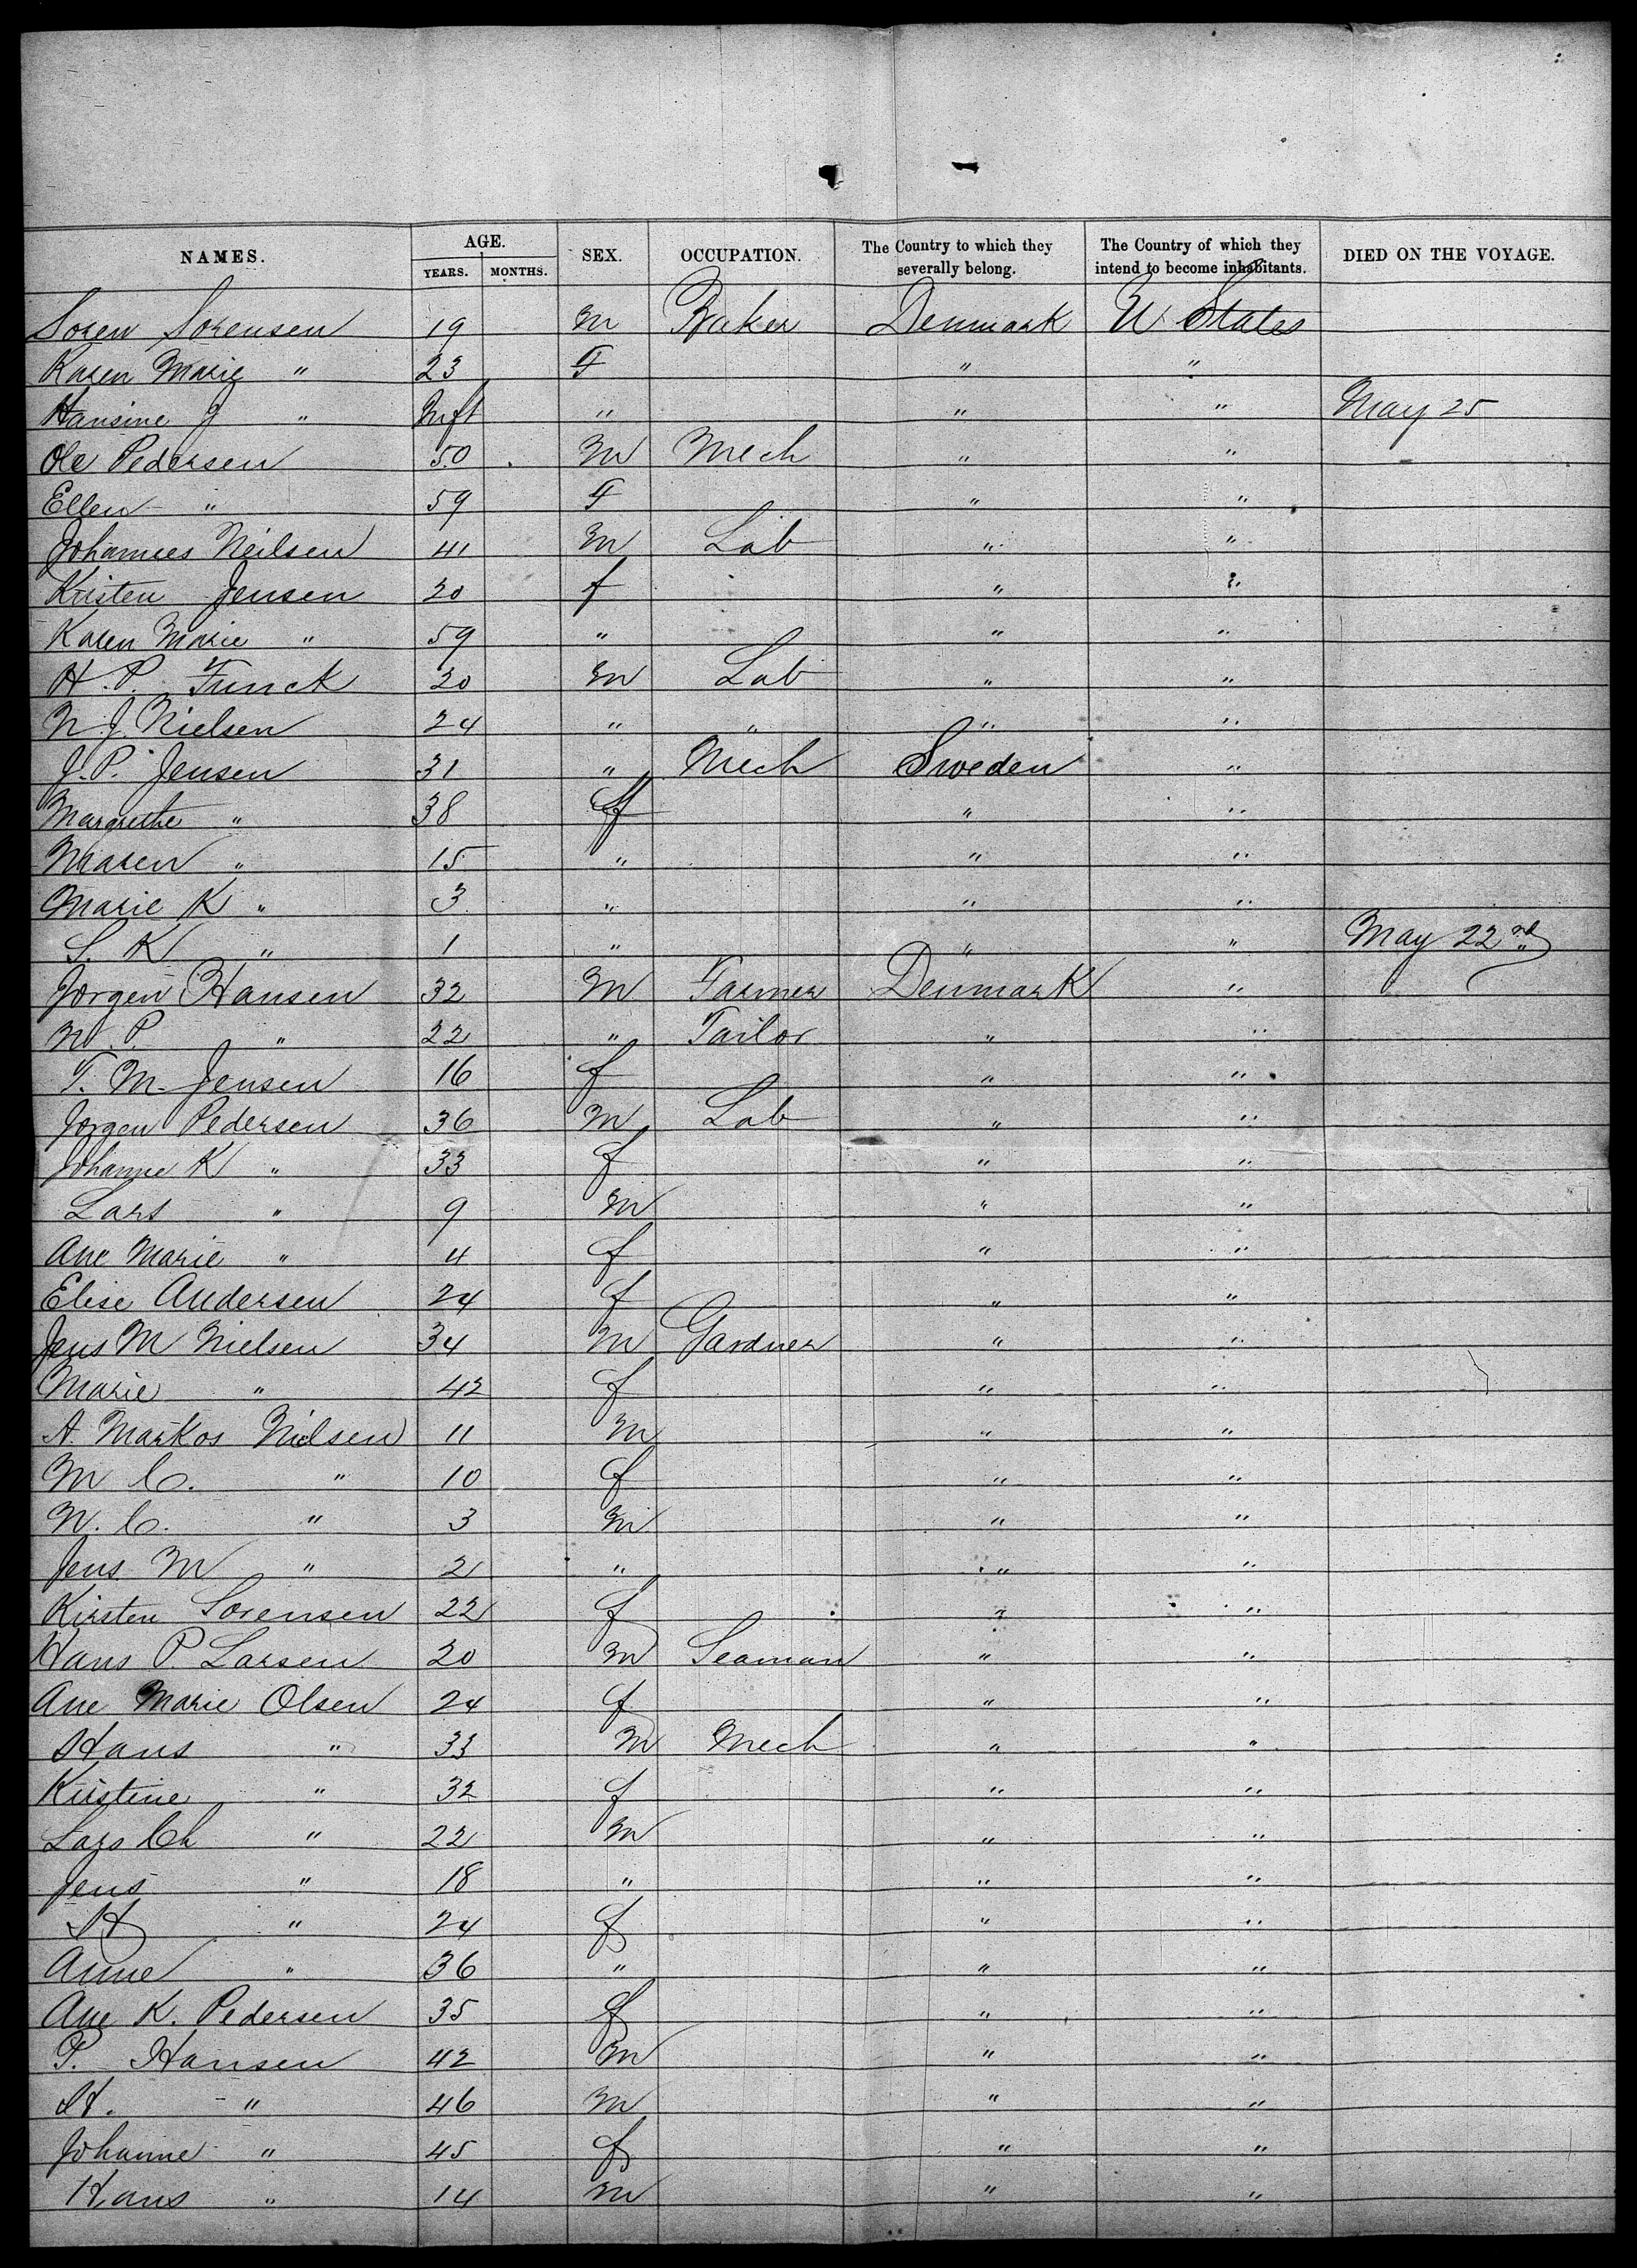 NAMES. AGE. SEX. OCCUPATION. The Country to which they severally belong. The Country of which they intend to become inhabitants. DIED ON THE VOYAGE.
YEARS. MONTHS.
Soren Sorensen 19 m Baker Denmark U States
Karen Marie " 23 F " "
Hansine J " Inft " " " May 25
Ole Pedersen 50 M Mech " "
Ellen " 59 F " "
Johannes Neilsen 41 M Lab " "
Kristen Jensen 20 f " "
Karen Marie " 59 " " "
H. P. Funck 20 M Lab " "
N. J. Nielsen 24 " " " "
J. P. Jensen 31 " Mech Sweden "
Margrethe " 38 f " "
Maren " 15 " " "
Marie K " 3 " " "
S. K " 1 " " " May 22nd
Jorgen Hansen 32 M Farmer Denmark "
N. P. " 22 " Tailor " "
T. M. Jensen 16 f " "
Jorgen Pedersen 36 M Lab " "
Johanne K " 33 f " "
Lars " 9 M " "
Ane Marie " 4 f " "
Elise Andersen 24 f " "
Jens M Nielsen 34 M Gardner " "
Marie " 42 f " "
A. Markos Nielsen 11 M " "
M C. " 10 f " "
N. C. " 3 M " "
Jens M " 2 " " "
Kirsten Sorensen 22 f " "
Hans P. Larsen 20 M Seaman " "
Ane Marie Olsen 24 f " "
Hans " 33 M Mech " "
Kristine " 32 f " "
Lars Ch " 22 M " "
Jens " 18 " " "
H " 24 f " "
Anne " 36 " " "
Ane K. Pedersen 35 f " "
P. Hansen 42 M " "
H. " 46 M " "
Johanne " 45 f " "
Hans " 14 M " "